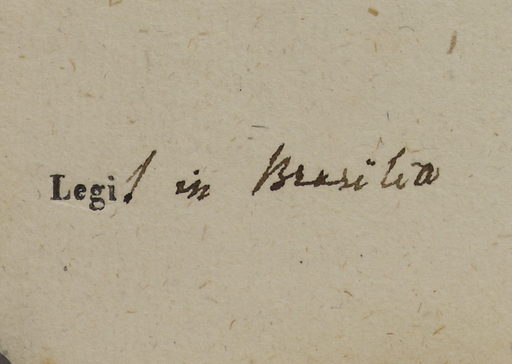 Legit in Brasilia